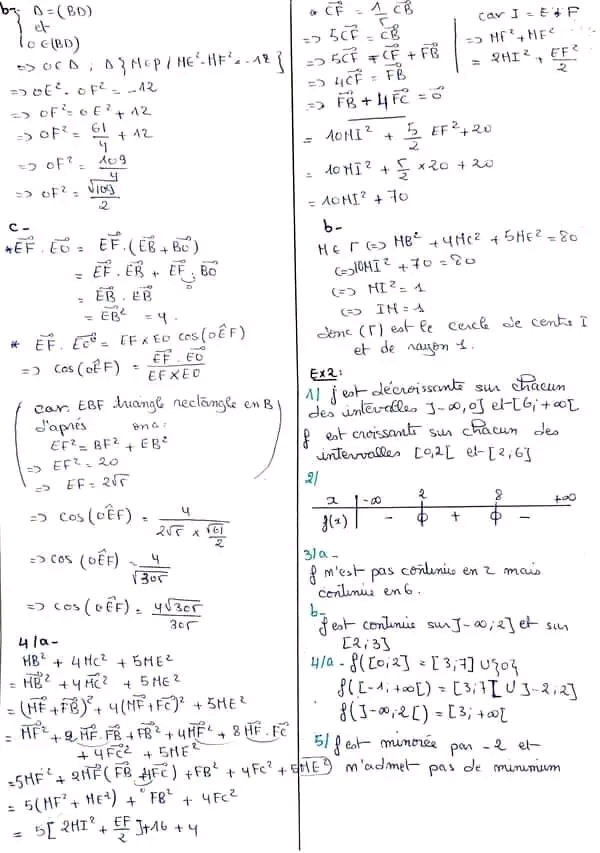 b- { Δ = (BD)
et
O ∈ (BD)
=> O ∈ Δ, Δ {M ∈ P / ME² - MF² = -12}
=> OE² - OF² = -12
=> OF² = OE² + 12
=> OF² = 61/4 + 12
=> OF² = 109/4
=> OF² = √109/2
c-
* EF→ . EO→ = EF→ . (EB→ + BO→)
= EF→ . EB→ + EF→ . BO→
= EB→ . EB→
= EB→² = 4.
* EF→ . EO→ = EF × EO cos(OÊF)
=> cos(OÊF) = EF→ . EO→ / EF × EO
(car EBF triangle rectangle en B
d'après on a:
EF² = BF² + EB²
=> EF² = 20
=> EF = 2√5)
=> cos(OÊF) = 4 / (2√5 × √61/2)
=> cos(OÊF) = 4/√305
=> cos(OÊF) = 4√305/305
4/a-
MB² + 4MC² + 5ME²
= MB→² + 4MC→² + 5ME²
= (MF→ + FB→)² + 4(MF→ + FC→)² + 5ME²
= MF→² + 2MF→ . FB→ + FB² + 4MF→² + 8MF→ . FC→
+ 4FC² + 5ME²
= 5MF² + 2MF→(FB→ + 4FC→) + FB² + 4FC² + 5ME²
= 5(MF² + ME²) + FB² + 4FC²
= 5[2MI² + EF/2] + 16 + 4
* CF→ = 1/5 CB→
=> 5CF→ = CB→
=> 5CF→ = CF→ + FB→
=> 4CF→ = FB→
=> FB→ + 4FC→ = 0→
car I = E * F
=> MF² + MF²
= 2MI² + EF²/2
= 10MI² + 5/2 EF² + 20
= 10MI² + 5/2 × 20 + 20
= 10MI² + 70
b-
M ∈ Γ <=> MB² + 4MC² + 5ME² = 80
<=> 10MI² + 70 = 80
<=> MI² = 1
<=> IM = 1
donc (Γ) est le cercle de centre I
et de rayon 1.
Ex2:
1/ f est décroissante sur chacun
des intervalles ]-∞,0] et [6,+∞[
f est croissante sur chacun des
intervalles [0,2[ et [2,6]
2/
x -∞ 2 8 +∞
f(x) - 0 + 0 -
3/a-
f n'est pas continue en 2 mais
continue en 6.
b-
f est continue sur ]-∞;2] et sur
[2;3]
4/a- f([0;2] = [3;7] ∪ {0}
f([-1;+∞[) = [3;7[ ∪ ]-2;2]
f(]-∞;2[) = [3;+∞[
5/ f est minorée par -2 et
n'admet pas de minimum